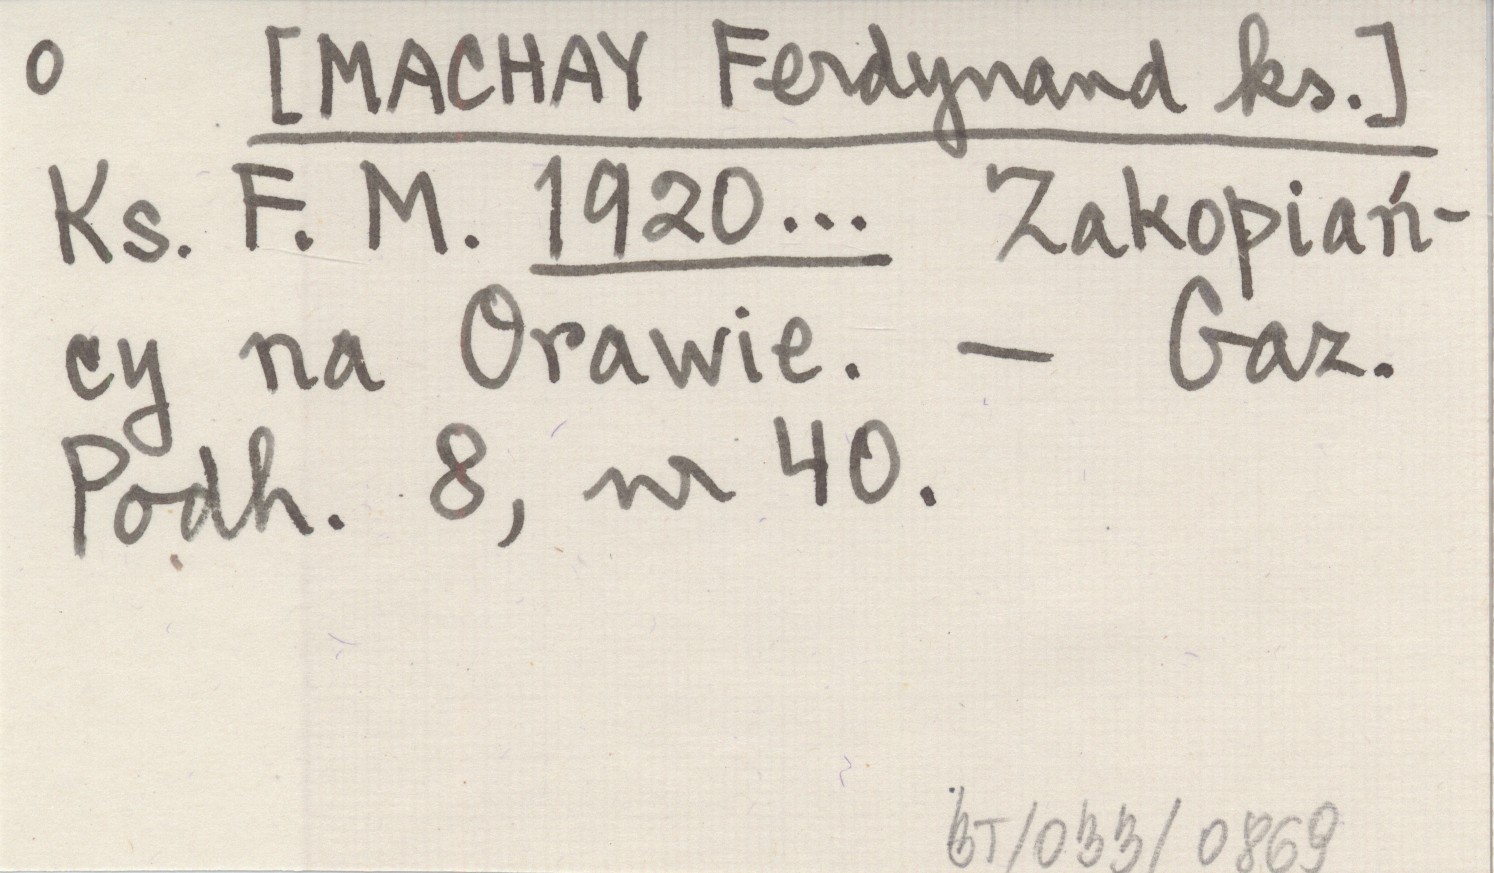 o [MACHAY Ferdynand ks.]
Ks. F. M. 1920... Zakopiań-
cy na Orawie. — Gaz.
Podh. 8, nr 40.
bT/033/0869